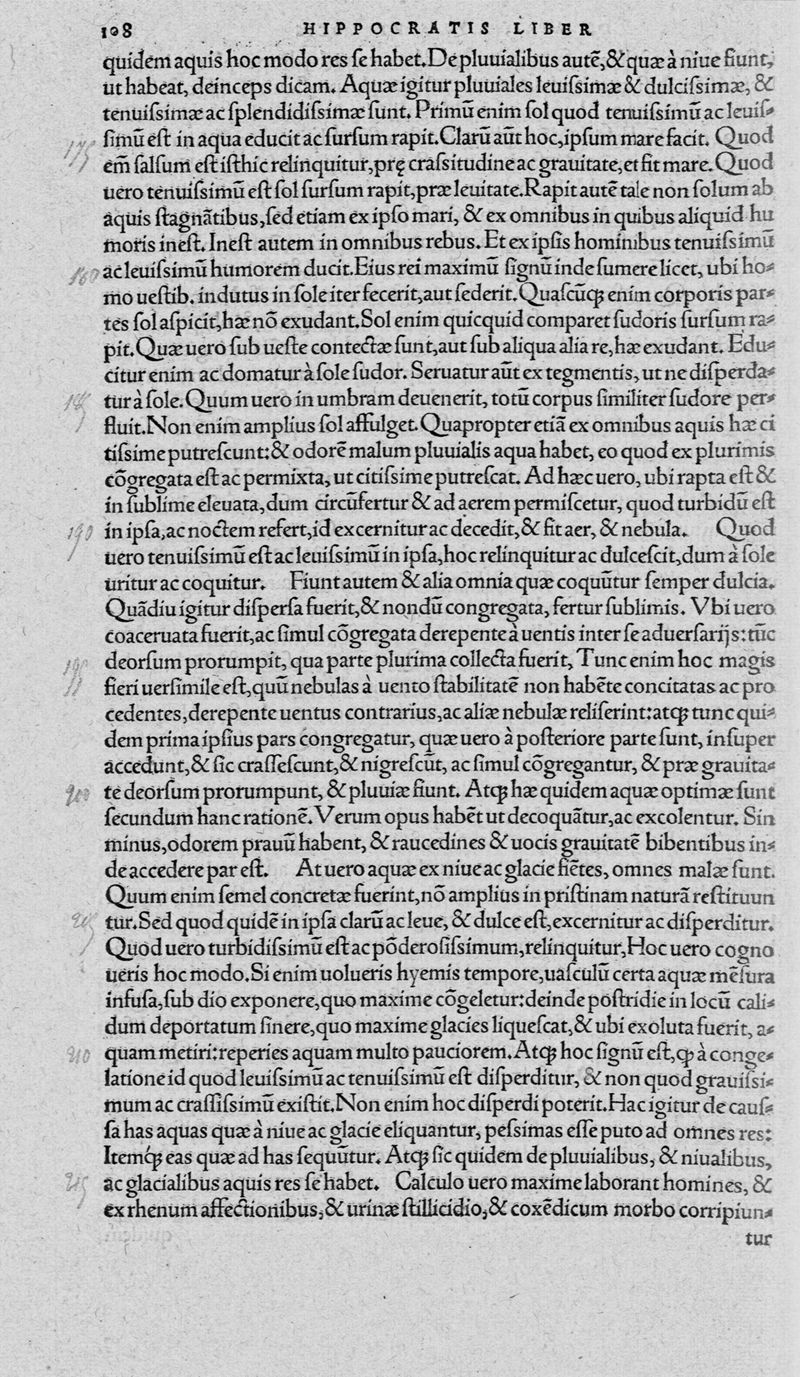 108 HIPPOCRATIS LIBER
quidem aquis hoc modo res ſe habet. De pluuialibus autẽ, & quæ à niue fiunt,
ut habeat, deinceps dicam. Aquæ igitur pluuiales leuiſsimæ & dulciſsimæ, &
tenuiſsimæ ac ſplendidiſsimæ ſunt. Primũ enim ſol quod tenuiſsimũ ac leuiſ⸗
ſimũ eſt in aqua educit ac ſurſum rapit. Clarũ aũt hoc, ipſum mare facit. Quod
em̃ ſalſum eſt iſthic relinquitur, prę craſsitudine ac grauitate, et fit mare. Quod
uero tenuiſsimũ eſt ſol ſurſum rapit, præ leuitate. Rapit autẽ tale non ſolum ab
aquis ſtagnãtibus, ſed etiam ex ipſo mari, & ex omnibus in quibus aliquid hu
moris ineſt. Ineſt autem in omnibus rebus. Et ex ipſis hominibus tenuiſsimũ
ac leuiſsimũ humorem ducit. Eius rei maximũ ſignũ inde ſumere licet, ubi ho⸗
mo ueſtib. indutus in ſole iter fecerit, aut ſederit. Quaſcũq; enim corporis par⸗
tes ſol aſpicit, hæ nõ exudant. Sol enim quicquid comparet ſudoris ſurſum ra⸗
pit. Quæ uero ſub ueſte contectæ ſunt, aut ſub aliqua alia re, hæ exudant. Edu⸗
citur enim ac domatur à ſole ſudor. Seruatur aũt ex tegmentis, ut ne diſperda⸗
tur à ſole. Quum uero in umbram deuenerit, totũ corpus ſimiliter ſudore per⸗
fluit. Non enim amplius ſol affulget. Quapropter etiã ex omnibus aquis hæ ci
tiſsime putreſcunt: & odorẽ malum pluuialis aqua habet, eo quod ex plurimis
cõgregata eſt ac permixta, ut citiſsime putreſcat. Ad hæc uero, ubi rapta eſt &
in ſublime eleuata, dum circũfertur & ad aerem permiſcetur, quod turbidũ eſt
in ipſa, ac noctem refert, id excernitur ac decedit, & fit aer, & nebula. Quod
uero tenuiſsimũ eſt ac leuiſsimũ in ipſa, hoc relinquitur ac dulceſcit, dum à ſole
uritur ac coquitur. Fiunt autem & alia omnia quæ coquũtur ſemper dulcia.
Quãdiu igitur diſperſa fuerit, & nondũ congregata, fertur ſublimis. Vbi uero
coaceruata fuerit, ac ſimul cõgregata derepente à uentis inter ſe aduerſarijs: tũc
deorſum prorumpit, qua parte plurima collecta fuerit, Tunc enim hoc magis
fieri ueriſimile eſt, quũ nebulas à uento ſtabilitatẽ non habẽte concitatas ac pro
cedentes, derepente uentus contrarius, ac aliæ nebulæ reliſerint: atq; tunc qui⸗
dem prima ipſius pars congregatur, quæ uero à poſteriore parte ſunt, inſuper
accedunt, & ſic craſſeſcunt, & nigreſcũt, ac ſimul cõgregantur, & præ grauita⸗
te deorſum prorumpunt, & pluuiæ fiunt. Atq; hæ quidem aquæ optimæ ſunt
ſecundum hanc rationẽ. Verum opus habẽt ut decoquãtur, ac excolentur. Sin
minus, odorem prauũ habent, & raucedines & uocis grauitatẽ bibentibus in⸗
de accedere par eſt. At uero aquæ ex niue ac glacie fiẽtes, omnes malæ ſunt.
Quum enim ſemel concretæ fuerint, nõ amplius in priſtinam naturã reſtituun
tur. Sed quod quidẽ in ipſa clarũ ac leue, & dulce eſt, excernitur ac diſperditur.
Quod uero turbidiſsimũ eſt ac põderoſiſsimum, relinquitur, Hoc uero cogno
ueris hoc modo. Si enim uolueris hyemis tempore, uaſculũ certa aquæ mẽſura
infuſa, ſub dio exponere, quo maxime cõgeletur: deinde poſtridie in locũ cali⸗
dum deportatum ſinere, quo maxime glacies liqueſcat, & ubi exoluta fuerit, a⸗
quam metiri: reperies aquam multo pauciorem. Atq; hoc ſignũ eſt, ꝙ à conge⸗
latione id quod leuiſsimũ ac tenuiſsimũ eſt diſperditur, & non quod grauiſsi⸗
mum ac craſſiſsimũ exiſtit. Non enim hoc diſperdi poterit. Hac igitur de cauſ⸗
ſa has aquas quæ à niue ac glacie eliquantur, peſsimas eſſe puto ad omnes res:
Itemq́; eas quæ ad has ſequũtur. Atq; ſic quidem de pluuialibus, & niualibus,
ac glacialibus aquis res ſe habet. Calculo uero maxime laborant homines, &
ex rhenum affectionibus, & urinæ ſtillicidio, & coxẽdicum morbo corripiun⸗
tur